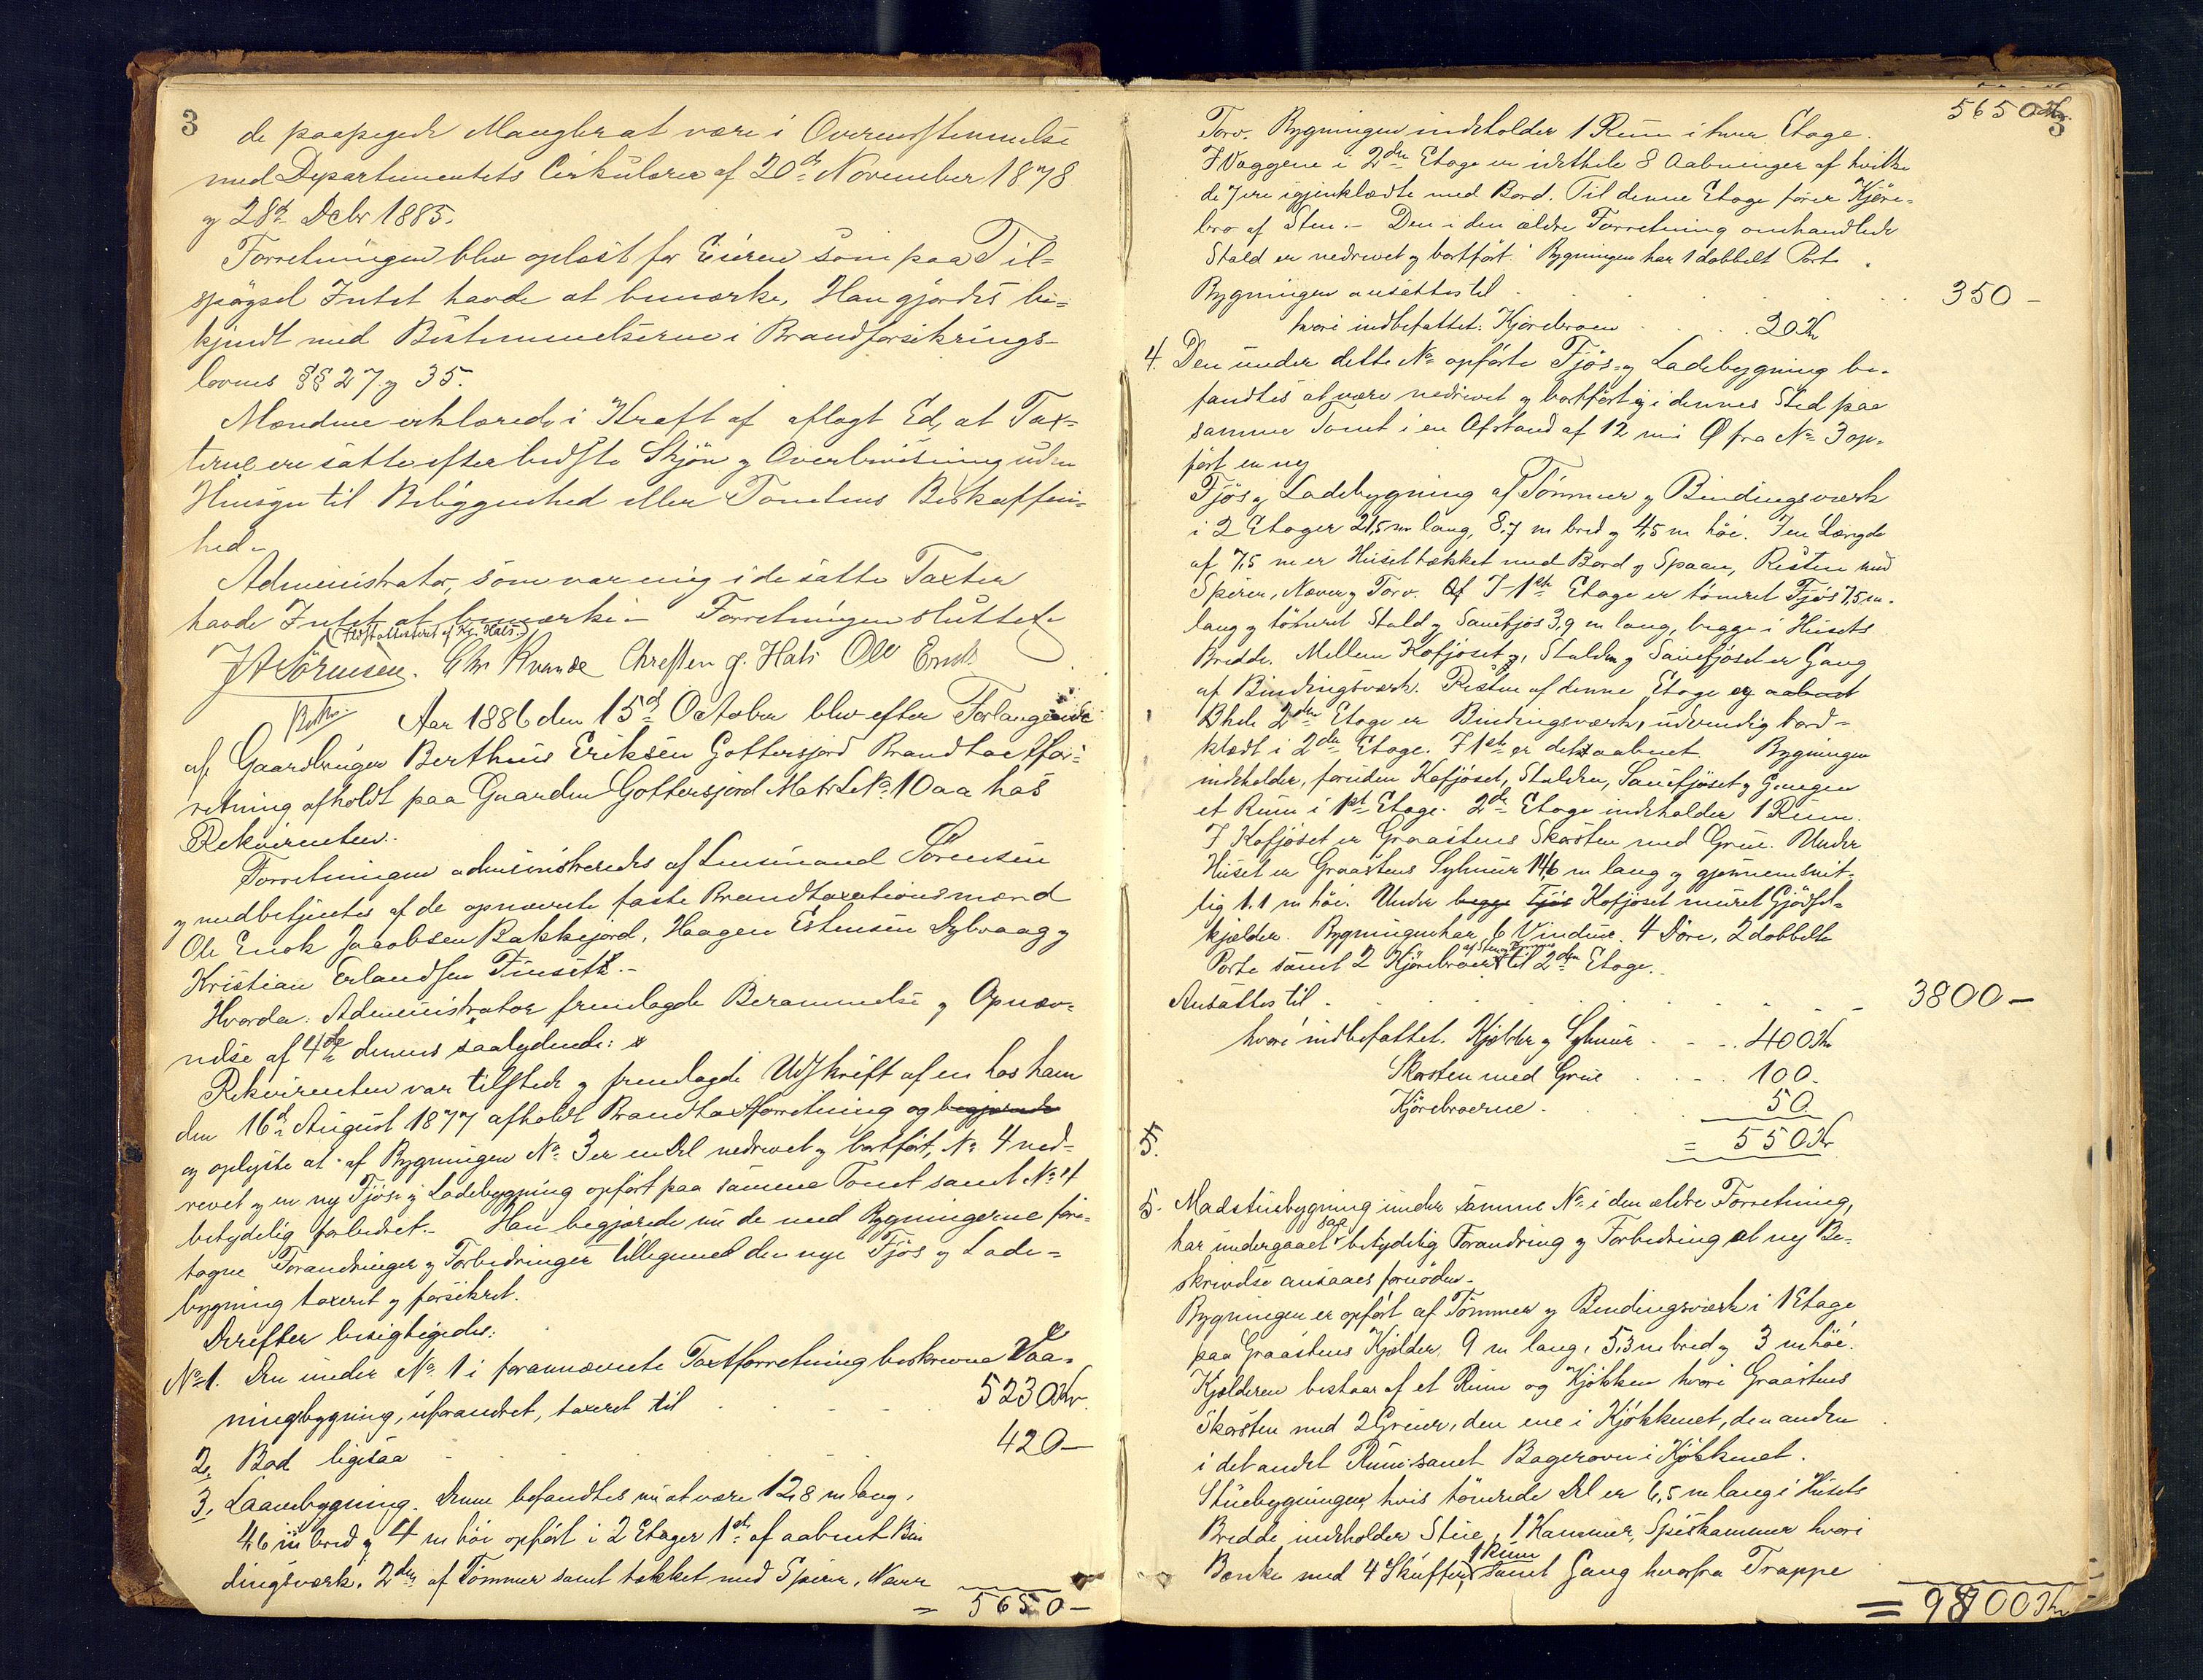 3
de paapegede Mangler at være i Overensstemmelse
med Departementets Cirkulærer af 20de November 1878
og 28de Debr 1885.
Forretningen blev oplæst for Eieren som paa Til-
spørgsel Intet havde at bemærke. Han gjordes be-
kjendt med Bestemmelserne i Brandforsikrings-
lovens §§ 27 og 35.
Mændene erklærede i Kraft af aflagt Ed, at Tax-
terne ere satte efter bedste Skjøn og Overbevisning uden
Hensyn til Beliggenhed eller Tomtens Beskaffen-
hed.
Administrator, som var enig i de satte Taxter
havde Intet at bemærke. Forretningen sluttet.
JA Sörensen. Chr Kvande Chresten J. Hals Ole Enok
Aar 1886 den 15de October blev efter Forlangende
af Gaardbruger Berthus Eriksen Gottersjord Brandtaxtfor-
retning afholdt paa Gaarden Gottersjord Matr L No 10aa hos
Rekvirenten.
Forretningen administreredes af Lensmand Sörensen
og medbetjentes af de opnævnte faste Brandtaxationsmænd
Ole Enok Jacobsen Bakkejord, Haagen Estensen Dybvaag og
Kristian Erlandsen Finseth.-
Hvorda: Administrator fremlagde Berammelse og Opnæv-
nelse af 4de dennes saalydende:
Rekvirenten var tilstede og fremlagde Udskrift af en hos ham
den 16de August 1877 afholdt Brandtaxtforretning og begjærede
og oplyste at af Bygningen No 3 er en Del nedrevet og bortført, No 4 ned-
revet og en ny Fjøs og Ladebygning opført paa samme Tomt samt No
betydelig forbedret.- Han begjærede nu de med Bygningerne fore-
tagne Forandringer og Forbedringer tilligemed den nye Fjøs og Lade-
bygning taxeret og forsikret.
Derefter besigtigedes:
No 1. Den under No 1 i forannævnte Taxtforretning beskrevne Vaa-
ningsbygning, uforandret, taxeret til 5230 Kr
2. Bod ligesaa 420 —
3. Laanebygning. Denne befandtes nu at være 12,8 m lang,
4,6 m bred og 4 m høi opført i 2 Etager 1ste af aabent Bin
dingsværk, 2den af Tømmer samt tækket med Speirer, Næver
= 5650 —
5650 Kr.
3
Torv. Bygningen indeholder 1 Rum i hver Etage.
I Væggene i 2den Etage er idethele 8 Aabninger af hvilke
de 7 ere igjenklædte med Bord. Til denne Etage fører Kjøre-
bro af Sten.- Den i den ældre Forretning omhandlede
Stald er nedrevet og bortført. Bygningen har 1 dobbelt Port.
Bygningen ansattes til 350 —
hvori indbefattet: Kjørebroen 20 Kr
4. Den under dette No opførte Fjøs og Ladebygning be-
fandtes at være nedrevet og bortført og i dennes Sted paa
samme Tomt i en Afstand af 12 m i Ø fra No 3 op-
ført en ny
Fjøs og Ladebygning af Tømmer og Bindingsværk
i 2 Etager 21,5 m lang, 8,7 m bred og 4,5 m høi. I en Længde
af 7,5 m er Huset tækket med Bord og Spaan, Resten med
Speirer, Næver og Torv. Af 1ste Etage er tømret Fjøs 7,5 m.
lang og tømret Stald og Sauefjøs 3,9 m lang, begge i Husets
Bredde. Mellem Kofjøset og Stalden og Sauefjøset er Gang
af Bindingsværk. Resten af denne Etage og aabent
hele 2den Etage er Bindingsværk, udvendig bord-
klædt i 2den Etage. I 1ste er det aabent. Bygningen
indeholder, foruden Kofjøset, Stalden, Sauefjøset og Gangen
et Rum i 1ste Etage. 2den Etage indeholder 1 Rum.
I Kofjøset er Graastens Skorsten med Grue. Under
Huset er Graastens Sylmur 14,6 m lang og gjennemsnit-
lig 1.1 m høi. Under begge Fjøs Kofjøset muret Gjødsel-
kjælder. Bygningen har 6 Vinduer, 4 Døre, 2 dobbelte
Porte samt 2 Kjørebroer af Sten og Tømmer til 2den Etage.
Ansættes til 3800 —
hvori indbefattet. Kjælder og Sylmur 400 Kr
Skorsten med Grue 100.
Kjørebroerne. 50.
= 550 Kr
5.
5. Madstuebygning under samme No i den ældre Forretning,
har undergaaet saa betydelig Forandring og Forbedring at ny Be-
skrivelse ansaaes fornøden.
Bygningen er opført af Tømmer og Bindingsværk i 1 Etage
paa Graastens Kjælder, 9 m lang, 5,3 m bred og 3 m høi.
Kjælderen bestaar af et Rum og Kjøkken hvori Graastens
Skorsten med 2 Gruer, den ene i Kjøkkenet, den anden
i det andet Rum samt Bagerovn i Kjøkkenet.
Stuebygningen, hvis tømrede Del er 6,5 m lang i Husets
Bredde, indeholder Stue, 1 Kammer, Speskammer hvori
Bænke med 4 Skuffer, 1 Rum samt Gang hvorfra Trappe
= 9800 Kr